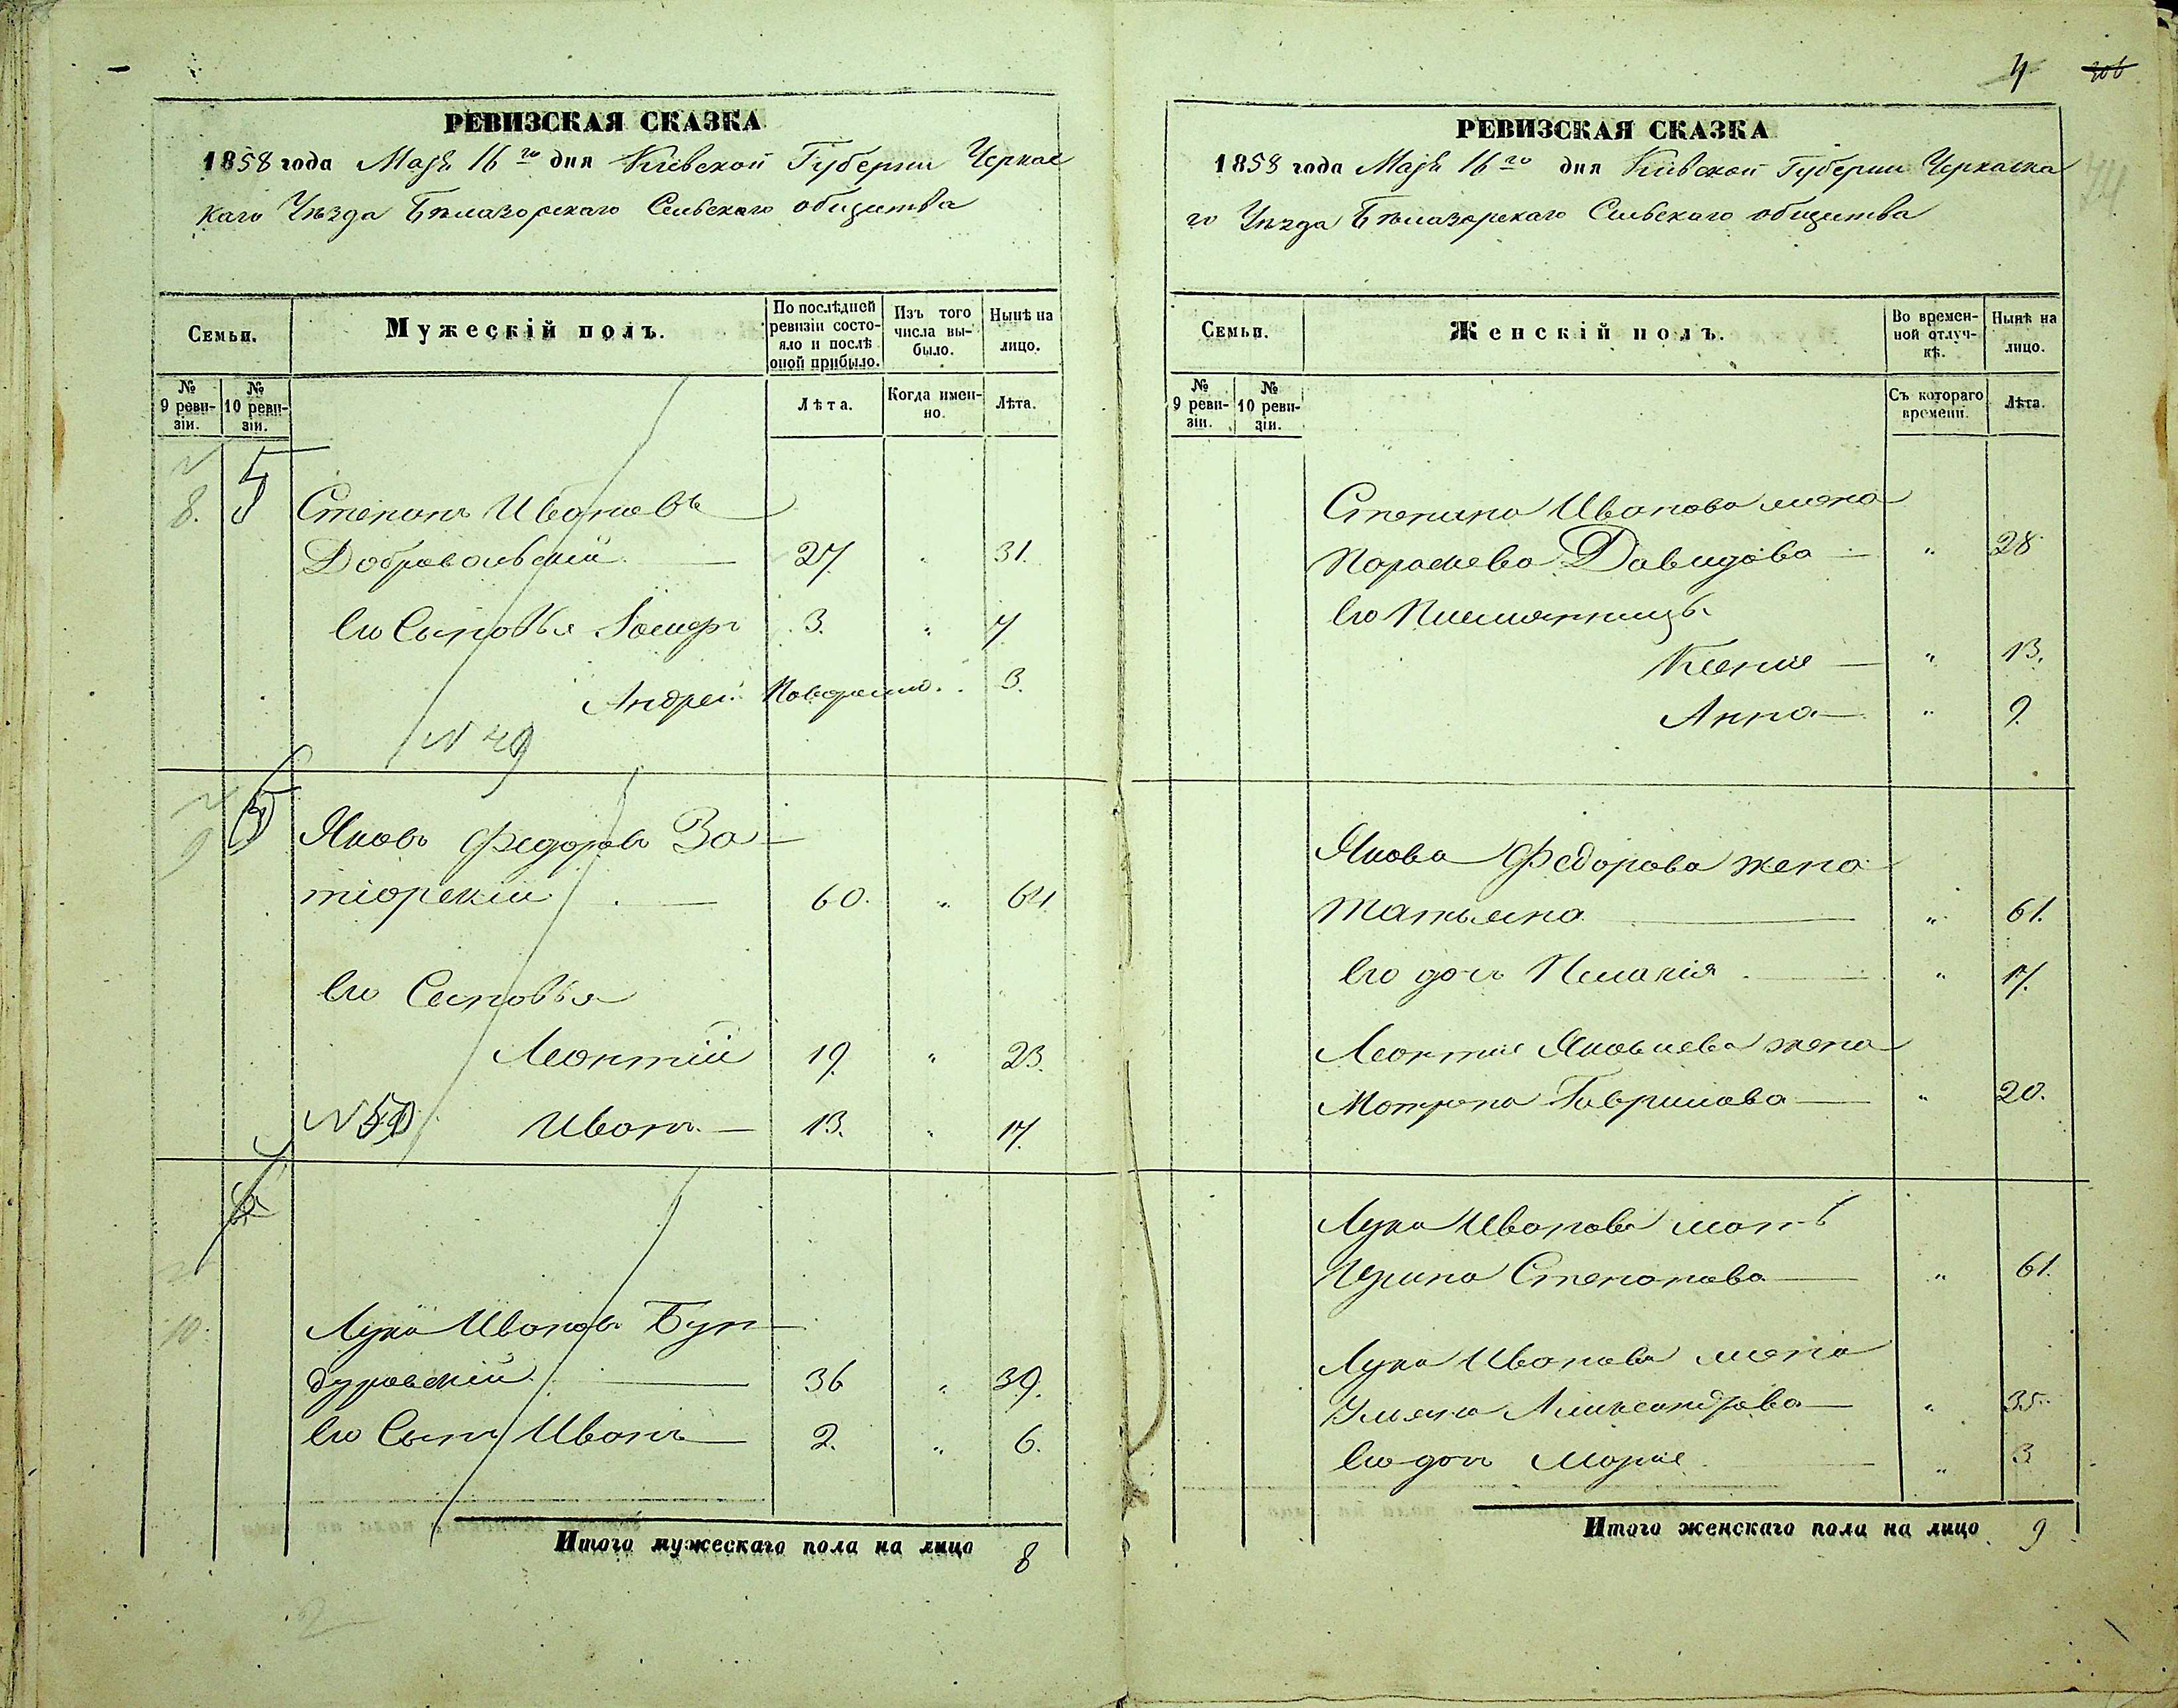 РЕВИЗСКАЯ СКАЗКА
1858 года Маія 16го дня Кіевской Губерніи Черкас
каго Уѣзда Бѣлазорскаго Сельскаго общества
Семьи.
Мужескій полъ.
По послѣдней ревизіи состояло и послѣ оной прибыло.
Изъ того числа выбыло.
Нынѣ на лицо.
№ 9 ревизіи.
№ 10 ревизіи.
Лѣта.
Когда именно.
Лѣта.
8. 5
Степанъ Ивановъ
Добровольскій 27 " 31.
Его Сыновья 3. " 7
Андрей Новорожд. 3.
N 49
9
Яковъ Федоровъ За-
тіорскій 60. " 64
Его Сыновья
Леонтій 19. " 23.
N 50 Иванъ 13. " 17.
10.
Лука Ивановъ Бун-
дуровскій 36 " 39.
Его Сынъ Иванъ 2. " 6.
Итого мужескаго пола на лицо 8
4
РЕВИЗСКАЯ СКАЗКА
1858 года Маія 16го дня Кіевской Губерніи Черкаска
го Уѣзда Бѣлазорскаго Сельскаго общества
Семьи.
Женскій полъ.
Во временной отлучкѣ.
Нынѣ на лицо.
№ 9 ревизіи.
№ 10 ревизіи.
Съ котораго времени.
Лѣта.
Степана Иванова жена
Параскева Давидова " 28
Его Племянницы
Ксенія " 13.
Анна " 9.
Якова Федорова жена
Татьяна " 61.
Его дочь Пелагія " 17.
Леонтія Яковлева жена
Мотрона Гаврилова " 20.
Луки Иванова мать
Ирина Степанова " 61.
Луки Иванова жена
Ульяна Александрова " 35.
Его дочь Марія " 3
Итого женскаго пола на лицо 9